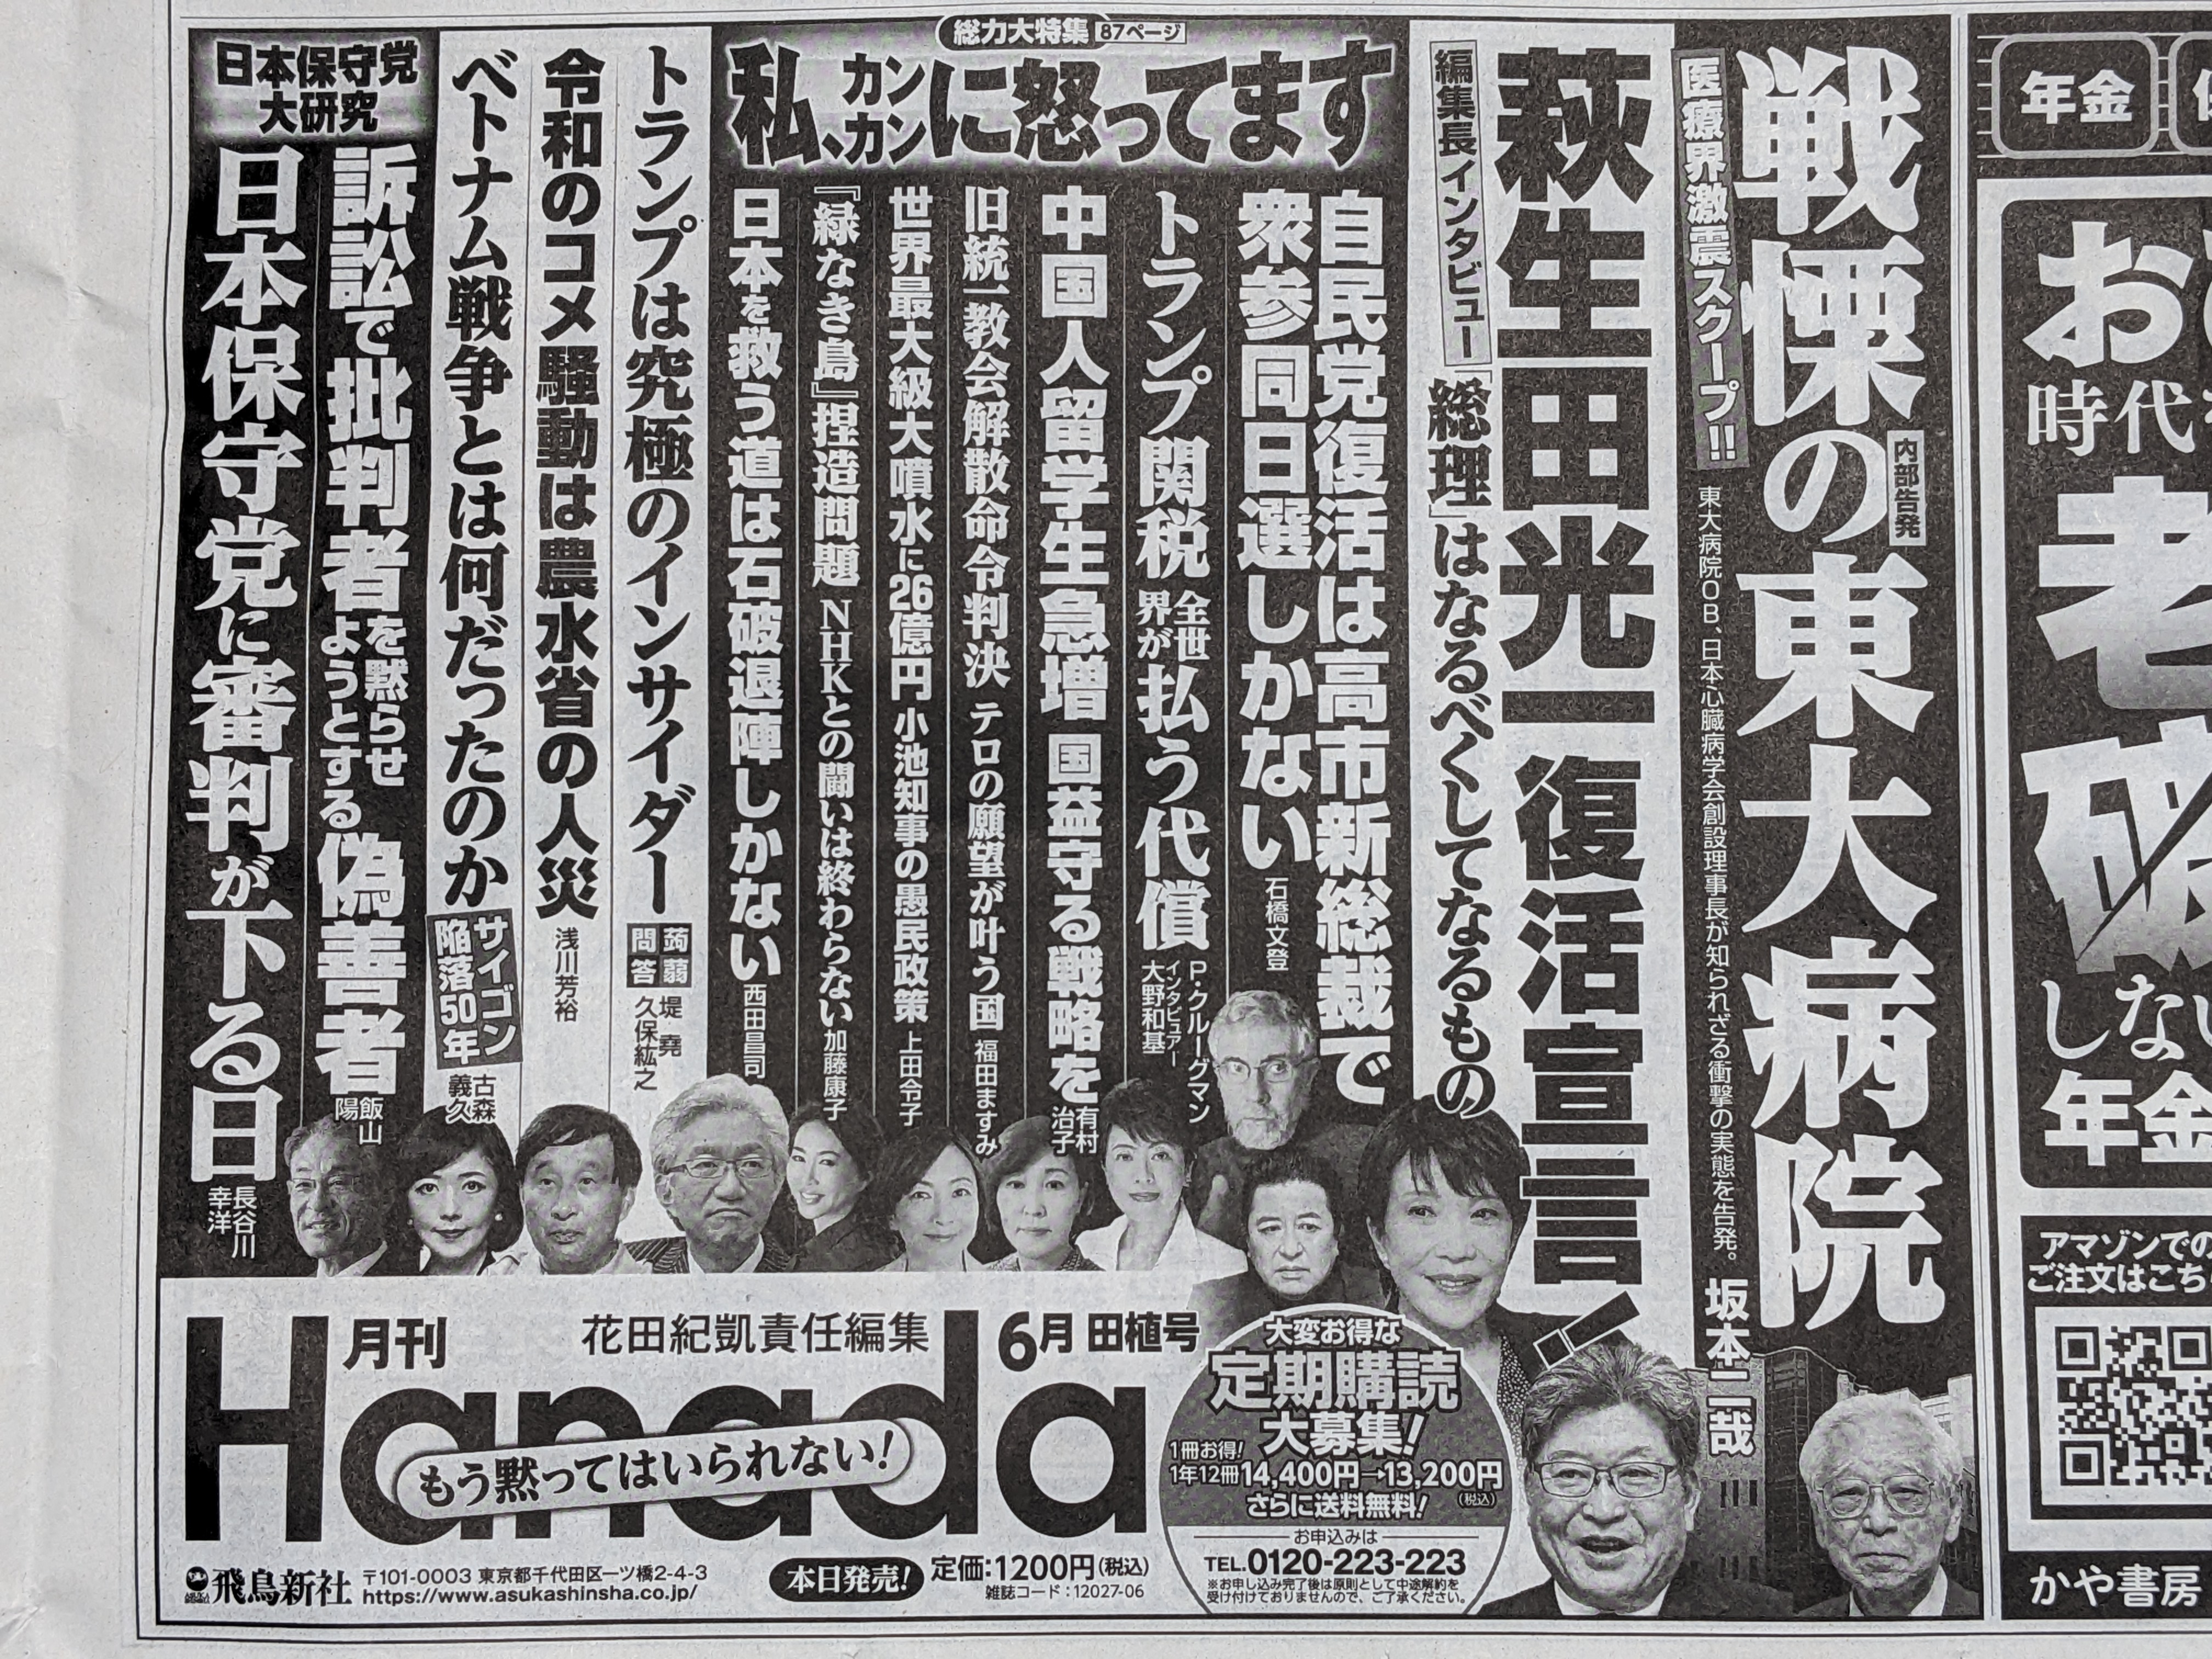 戦慄の東大病院
内部告発
医療界激震スクープ!!
東大病院OB、日本心臓病学会創設理事長が知られざる衝撃の実態を告発。
坂本二哉
萩生田光一 復活宣言!
編集長インタビュー
「総理」はなるべくしてなるもの
総力大特集 87ページ
私、カンカンに怒ってます
自民党復活は高市新総裁で
衆参同日選しかない
石橋文登
トランプ関税 全世界が払う代償
P・クルーグマン
インタビュアー
大野和基
中国人留学生急増 国益守る戦略を
有村治子
旧統一教会解散命令判決 テロの願望が叶う国
福田ますみ
世界最大級大噴水に26億円 小池知事の愚民政策
上田令子
『緑なき島』捏造問題 NHKとの闘いは終わらない
加藤康子
日本を救う道は石破退陣しかない
西田昌司
トランプは究極のインサイダー
蒟蒻問答
堤 堯
久保紘之
令和のコメ騒動は農水省の人災
浅川芳裕
ベトナム戦争とは何だったのか
サイゴン陥落50年
古森義久
日本保守党
大研究
訴訟で批判者を黙らせようとする偽善者
飯山陽
日本保守党に審判が下る日
長谷川幸洋
月刊
Hanada
花田紀凱責任編集
6月 田植号
もう黙ってはいられない!
飛鳥新社
〒101-0003 東京都千代田区一ツ橋2-4-3
https://www.asukashinsha.co.jp/
本日発売!
定価:1200円(税込)
雑誌コード:12027-06
大変お得な
定期購読
大募集!
1冊お得!
1年12冊14,400円→13,200円
(税込)
さらに送料無料!
お申込みは
TEL.0120-223-223
※お申し込み完了後は原則として中途解約を
受け付けておりませんので、ご了承ください。
年金
お
時代
老
破
しない
年金
アマゾンでの
ご注文はこち
かや書房